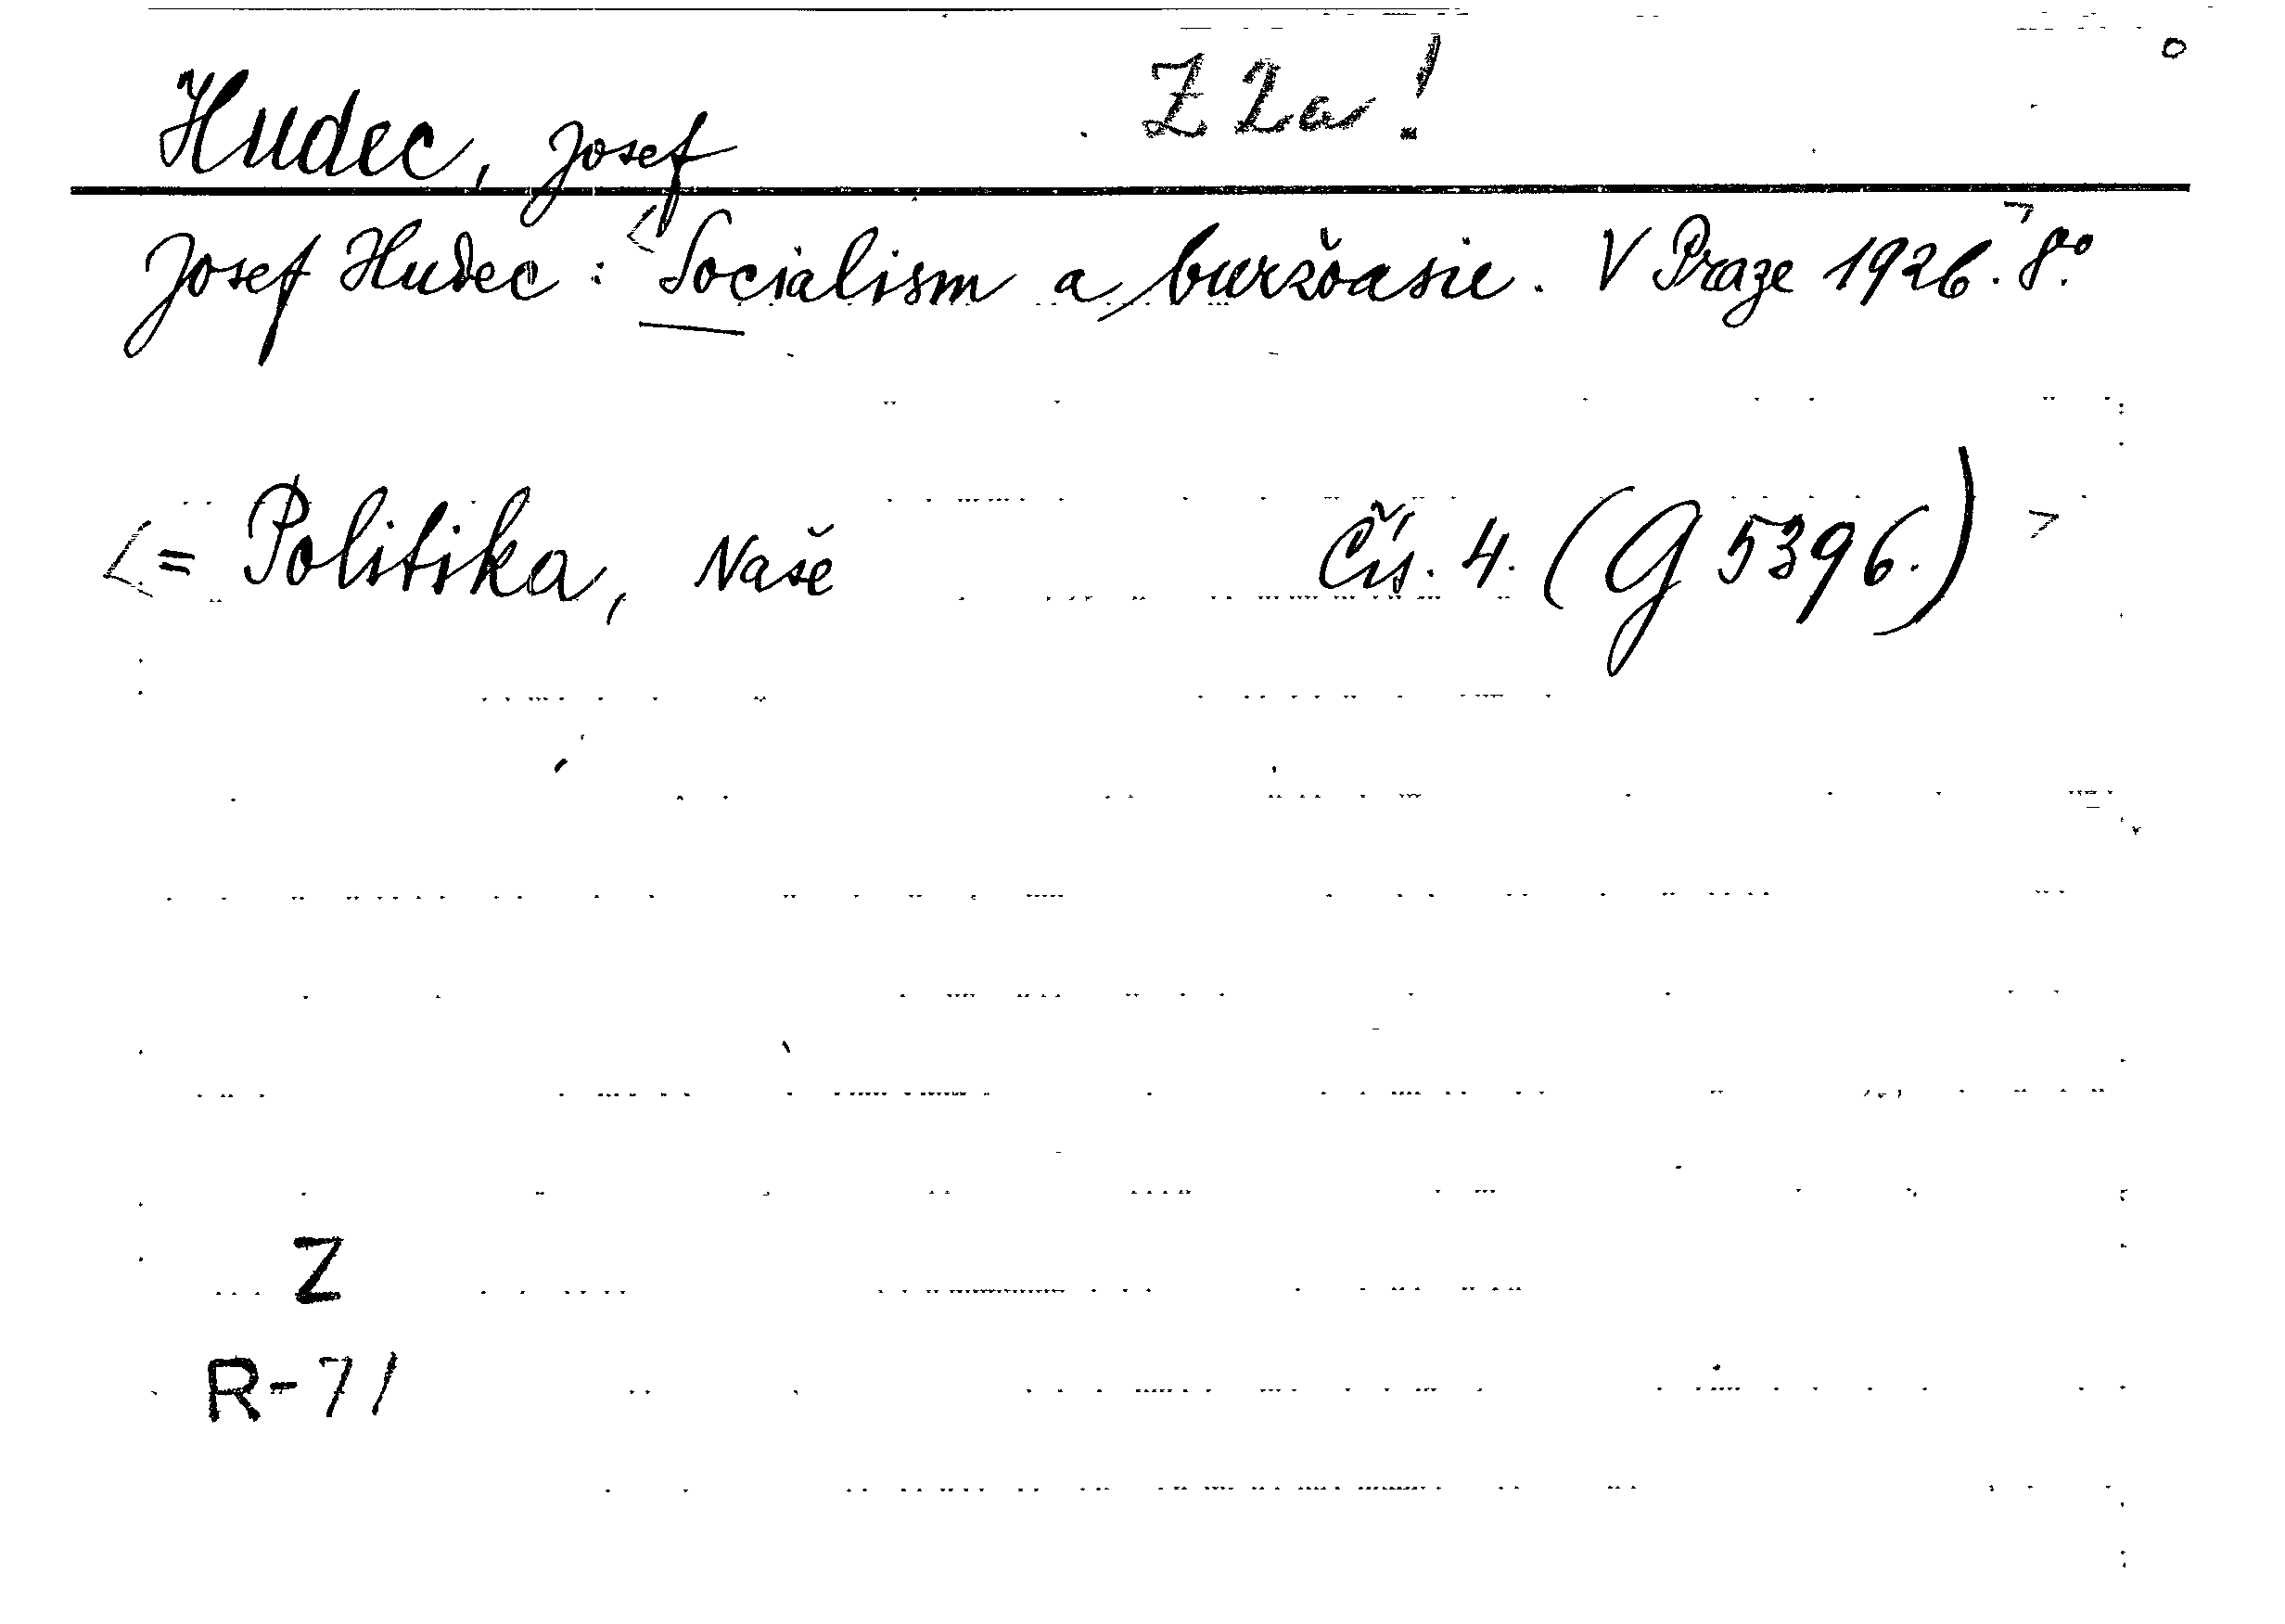 Hudec, Josef Z 2a!
Josef Hudec: <Socialism a buržoasie. V Praze 1926.> 8.°
<= Politika, Naše Čís. 4. (G 5396.) >
Z
R-71